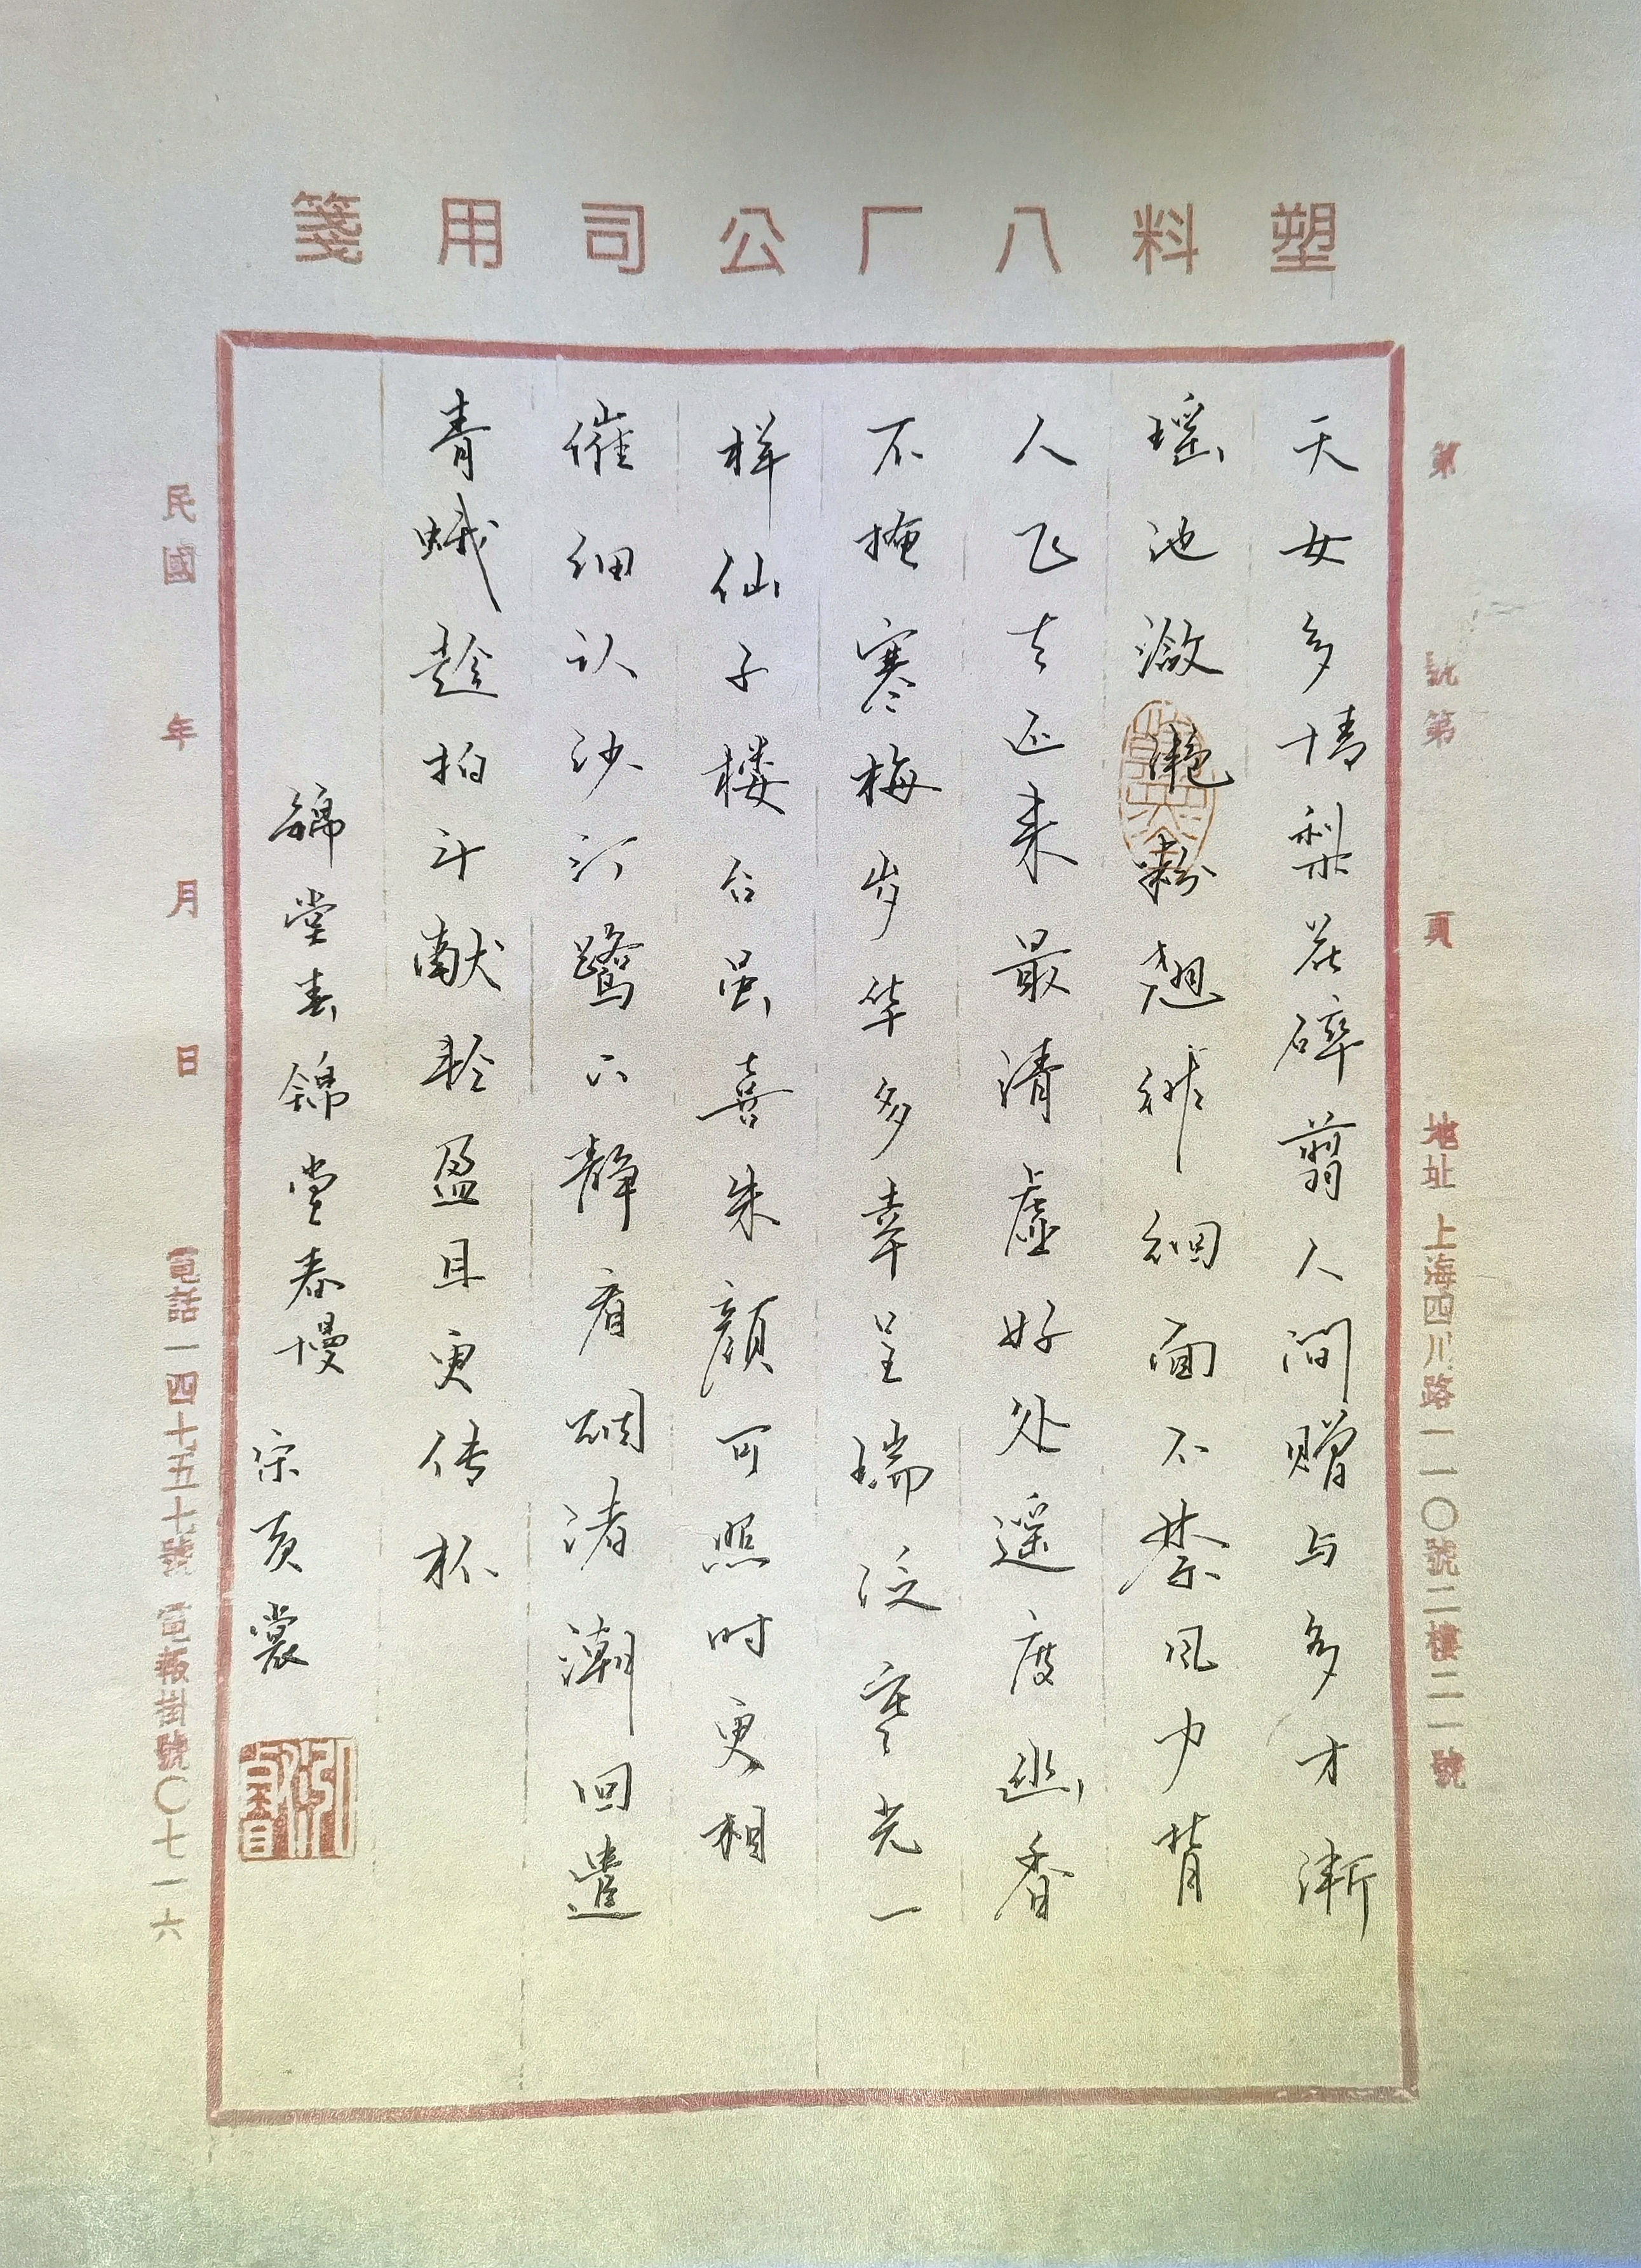 塑料八厂公司用箋
第 號第 頁 地址 上海四川路一一〇號二樓二一一號
天女多情梨花碎翦人间赠与多才渐
瑶池潋滟粉翘徘徊面不禁风力背
人飞去还来最清虚好处遥度幽香
不掩寒梅岁华多幸呈瑞泛寒光一
样仙子楼台虽喜朱颜可照时更相
催细认沙汀鹭下静看烟渚潮回遣
青娥趁拍斗献轻盈且更传杯
锦堂春锦堂春慢 宋黄裳
民國 年 月 日 電話一四十五十號 電報掛號〇七一六